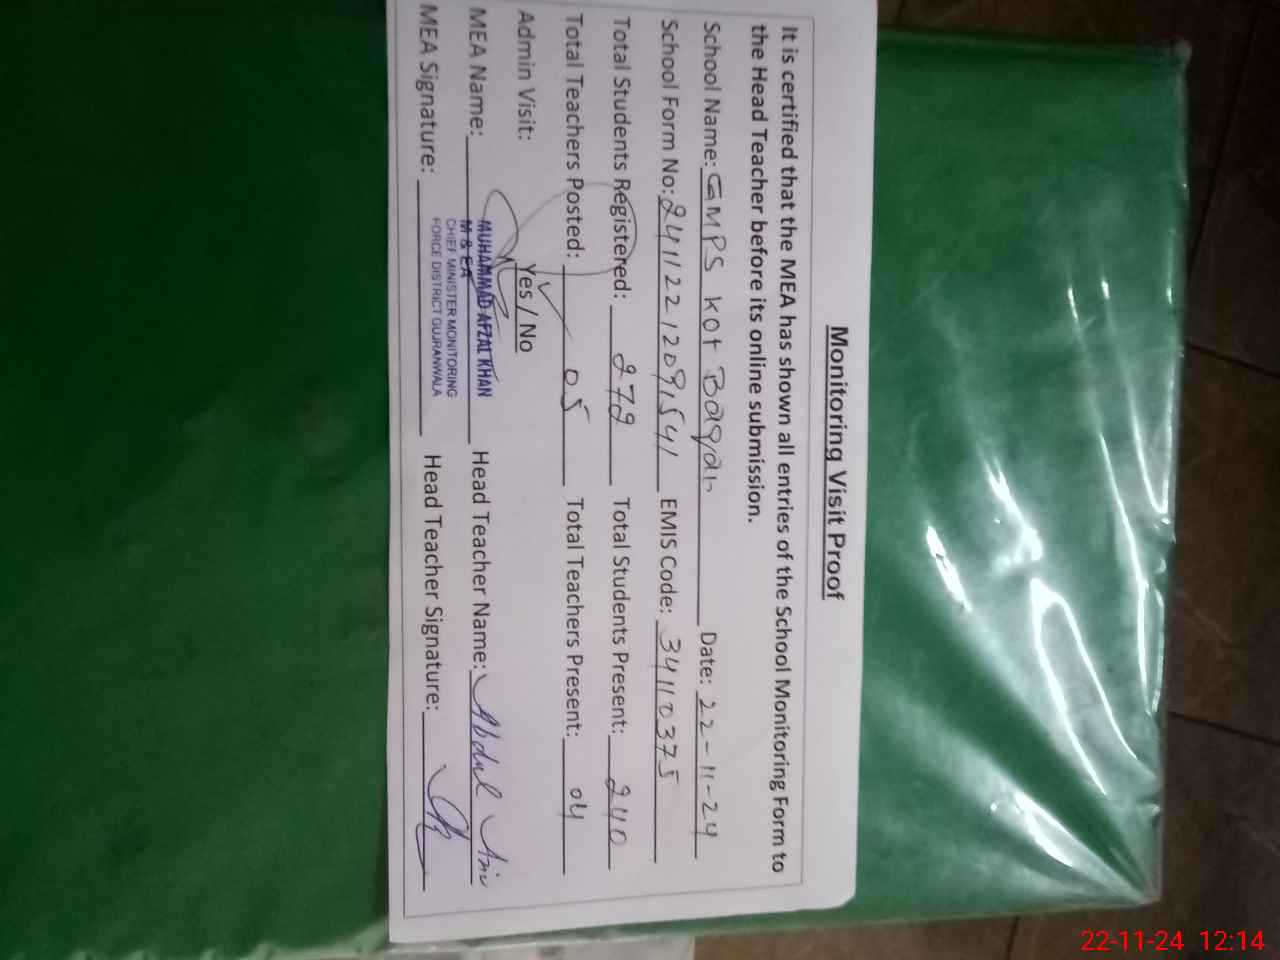 Monitoring Visit Proof
It is certified that the MEA has shown all entries of the School Monitoring Form to
the Head Teacher before its online submission.
School Name: GMPS Kot Bagah Date: 22-11-24
School Form No: 2411221209,541 EMIS Code: 34110375
Total Students Registered: 272 Total Students Present: 240
Total Teachers Posted: 05 Total Teachers Present: 04
Admin Visit: Yes / No
MEA Name: MUHAMMAD AFZAL KHAN Head Teacher Name: Abdul
M & EA
CHIEF MINISTER MONITORING
FORCE DISTRICT GUJRANWALA
MEA Signature: Head Teacher Signature:
22-11-24 12:14